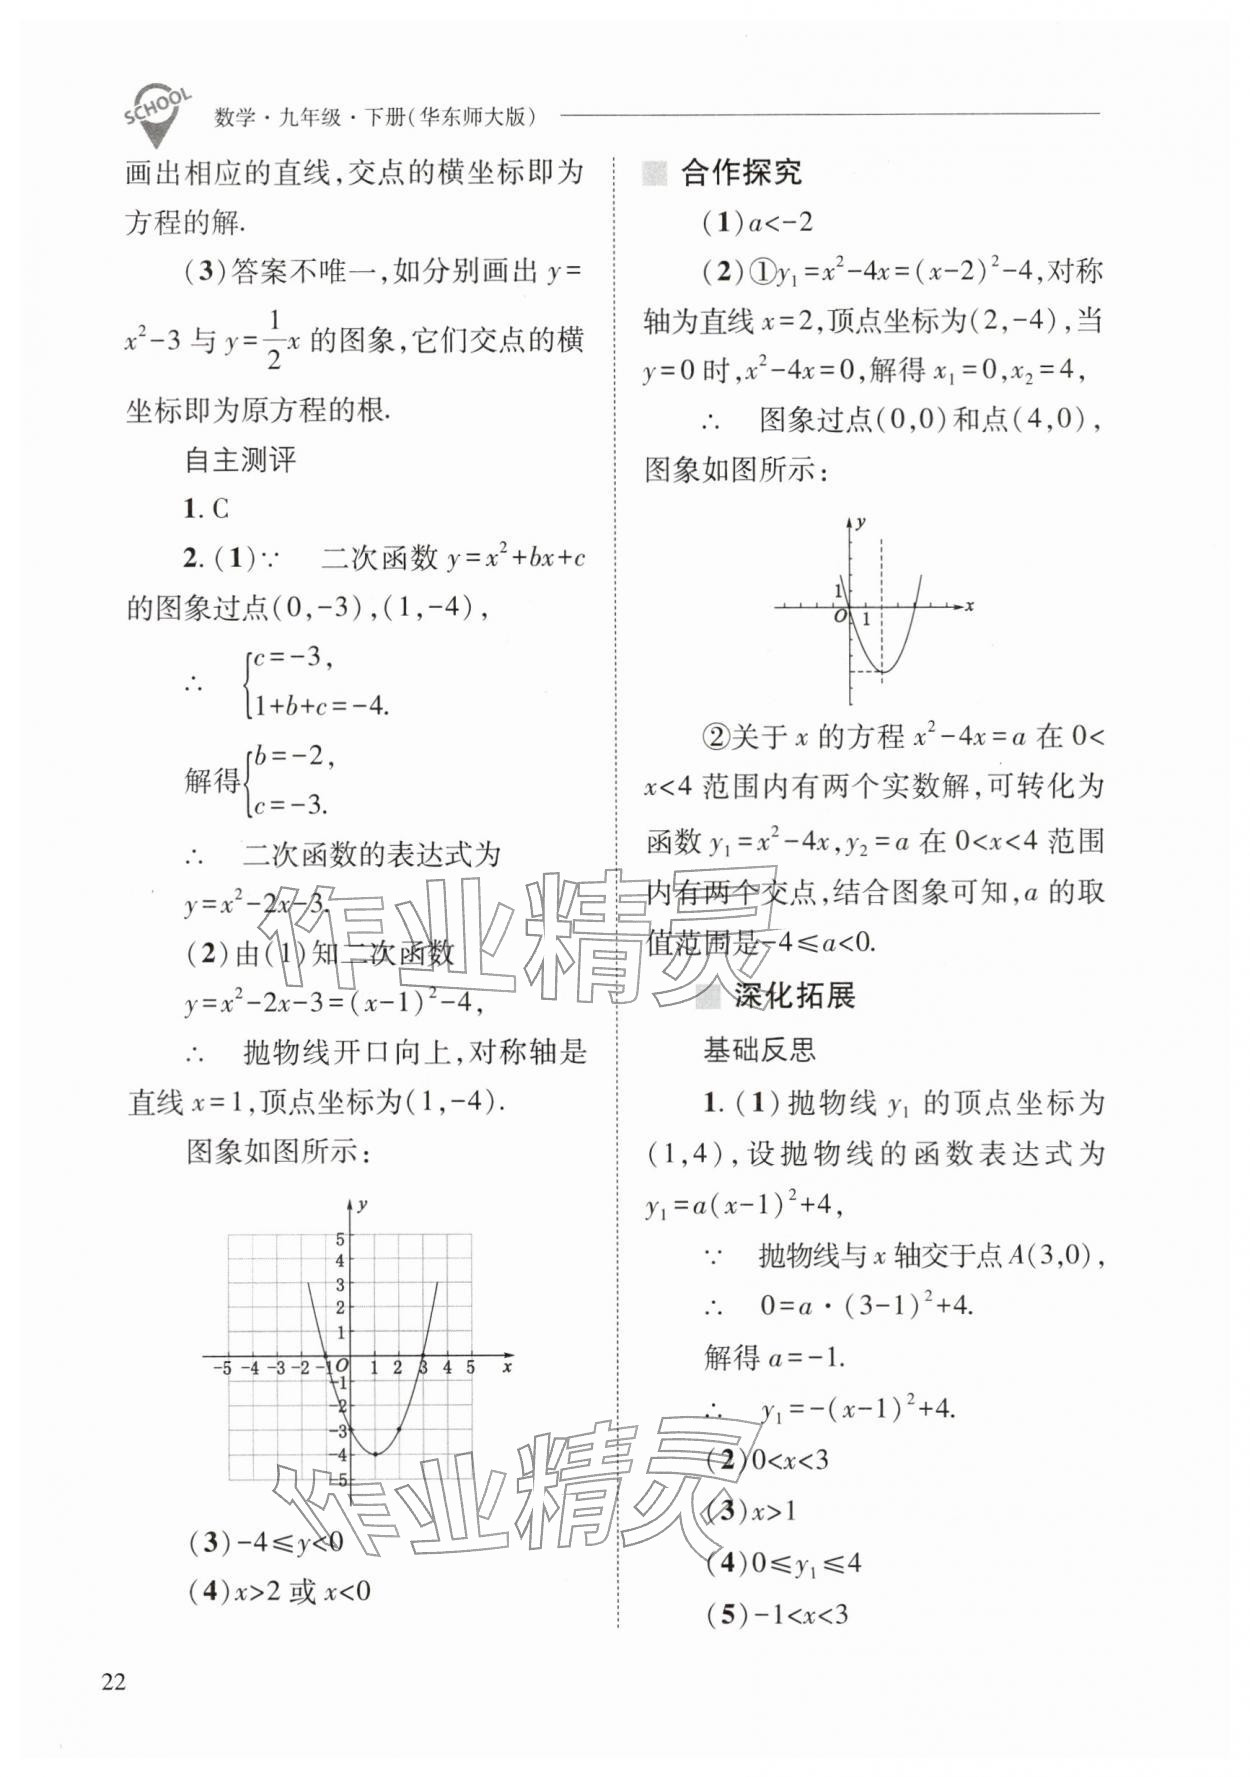 SCHOOL
数学·九年级·下册(华东师大版)
画出相应的直线,交点的横坐标即为
方程的解.
(3)答案不唯一,如分别画出 y=
x²-3 与 y=1/2x 的图象,它们交点的横
坐标即为原方程的根.
自主测评
1. C
2. (1)∵ 二次函数 y=x²+bx+c
的图象过点(0,-3),(1,-4),
∴ {c=-3,
1+b+c=-4.
解得{b=-2,
c=-3.
∴ 二次函数的表达式为
y=x²-2x-3.
(2)由(1)知二次函数
y=x²-2x-3=(x-1)²-4,
∴ 抛物线开口向上,对称轴是
直线 x=1,顶点坐标为(1,-4).
图象如图所示:
y
5
4
3
2
1
-5 -4 -3 -2 -1 O 1 2 3 4 5 x
-1
-2
-3
-4
-5
(3)-4≤y<0
(4)x>2 或 x<0
合作探究
(1)a<-2
(2)①y₁=x²-4x=(x-2)²-4,对称
轴为直线 x=2,顶点坐标为(2,-4),当
y=0 时,x²-4x=0,解得 x₁=0,x₂=4,
∴ 图象过点(0,0)和点(4,0),
图象如图所示:
y
1
O 1 x
②关于 x 的方程 x²-4x=a 在 0<
x<4 范围内有两个实数解,可转化为
函数 y₁=x²-4x,y₂=a 在 0<x<4 范围
内有两个交点,结合图象可知,a 的取
值范围是-4≤a<0.
深化拓展
基础反思
1. (1)抛物线 y₁ 的顶点坐标为
(1,4),设抛物线的函数表达式为
y₁=a(x-1)²+4,
∵ 抛物线与 x 轴交于点 A(3,0),
∴ 0=a·(3-1)²+4.
解得 a=-1.
∴ y₁=-(x-1)²+4.
(2)0<x<3
(3)x>1
(4)0≤y₁≤4
(5)-1<x<3
22
作业精灵
作业精灵